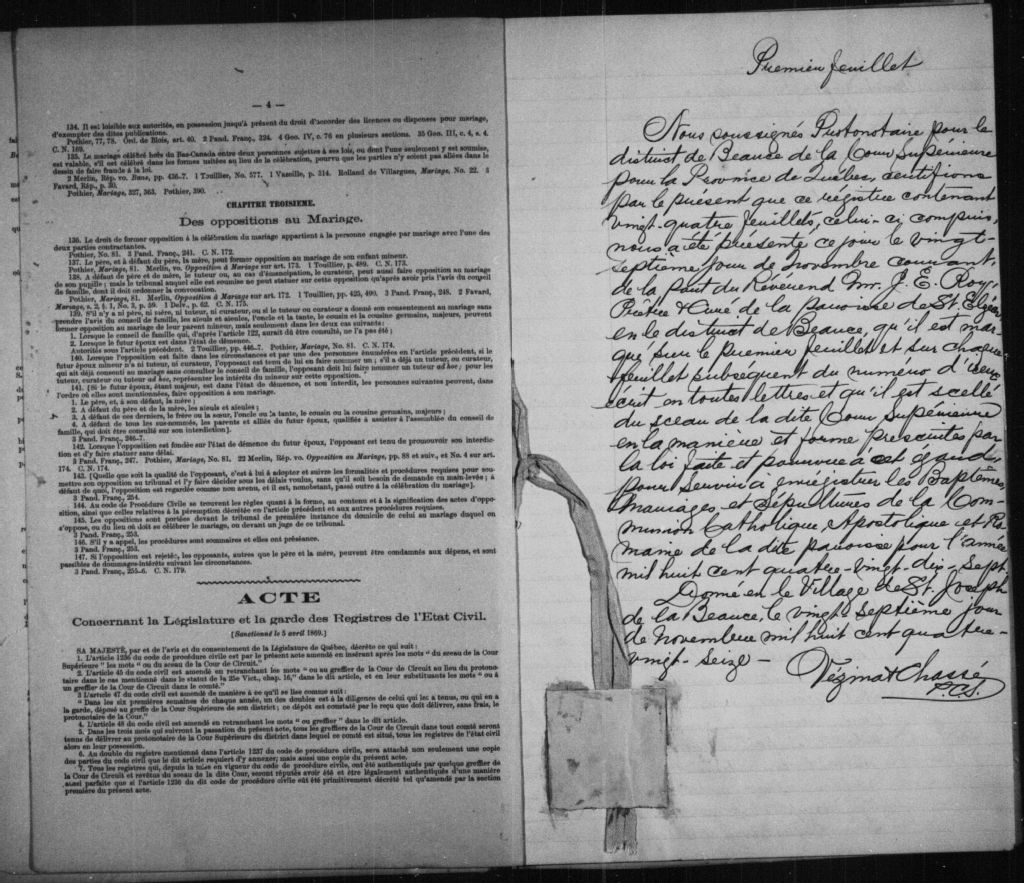 — 4 —
134. Il est loisible aux autorités, en possession jusqu'à présent du droit d'accorder des licences ou dispenses pour mariage,
d'exempter des dites publications.
Pothier, 77, 78. Ord. de Blois, art. 40. 2 Pand. Franç., 324. 4 Geo. IV, c. 76 en plusieurs sections. 35 Geo. III, c. 4, s. 4.
C. N. 169.
135. Le mariage célébré hors du Bas-Canada entre deux personnes sujettes à ses lois, ou dont l'une seulement y est soumise,
est valable, s'il est célébré dans les formes usitées au lieu de la célébration, pourvu que les parties n'y soient pas allées dans le
dessin de faire fraude à la loi.
2 Merlin, Rép. vo. Bans, pp. 436-7. 1 Touillier, No. 577. 1 Vazeille, p. 314. Rolland de Villargues, Mariage, No. 22.
Favard, Rép., p. 30.
Pothier, Mariage, 327, 363. Pothier, 390.
CHAPITRE TROISIEME.
Des oppositions au Mariage.
136. Le droit de former opposition à la célébration du mariage appartient à la personne engagée par mariage avec l'une des
deux parties contractantes.
Pothier, No. 81. 3 Pand. Franç., 241. C. N. 172.
137. Le père, et à défaut du père, la mère, peut former opposition au mariage de son enfant mineur.
Pothier, Mariage, 81. Merlin, vo. Opposition à Mariage sur art. 173. 1 Touillier, p. 489. C. N. 173.
138. A défaut de père et de mère, le tuteur ou, au cas d'émancipation, le curateur, peut aussi faire opposition au mariage
de son pupille; mais le tribunal auquel elle est soumise ne peut statuer sur cette opposition qu'après avoir pris l'avis du conseil
de famille, dont il doit ordonner la convocation.
Pothier, Mariage, 81. Merlin, Opposition à Mariage sur art. 172. 1 Touillier, pp. 425, 490. 3 Pand. Franç., 248. 2 Favard,
Mariage, s. 2, § 1, No. 3, p. 59. 1 Delv., p. 62. C. N. 175.
139. S'il n'y a ni père, ni mère, ni tuteur, ni curateur, ou si le tuteur ou curateur a donné son consentement au mariage sans
prendre l'avis du conseil de famille, les aïeuls et aïeules, l'oncle et la tante, le cousin et la cousine germains, majeurs, peuvent
former opposition au mariage de leur parent mineur, mais seulement dans les deux cas suivants:
1. Lorsque le conseil de famille qui, d'après l'article 122, aurait dû être consulté, ne l'a pas été;
2. Lorsque le futur époux est dans l'état de démence.
Autorités sous l'article précédent. 2 Touillier, pp. 446-7. Pothier, Mariage, No. 81. C. N. 174.
140. Lorsque l'opposition est faite dans les circonstances et par une des personnes énumérées en l'article précédent, si le
futur époux mineur n'a ni tuteur, ni curateur, l'opposant est tenu de lui en faire nommer un; s'il a déjà un tuteur, ou curateur,
qui ait déjà consenti au mariage sans consulter le conseil de famille, l'opposant doit lui faire nommer un tuteur ad hoc; pour les
tuteur, curateur ou tuteur ad hoc, représenter les intérêts du mineur sur cette opposition.
141. [Si le futur époux, étant majeur, est dans l'état de démence, et non interdit, les personnes suivantes peuvent, dans
l'ordre où elles sont mentionnées, faire opposition à son mariage.
1. Le père, et, à son défaut, la mère;
2. A défaut du père et de la mère, les aïeuls et aïeules;
3. A défaut de ces derniers, le frère ou la sœur, l'oncle ou la tante, le cousin ou la cousine germains, majeurs;
4. A défaut de tous les sus-nommés, les parents et alliés du futur époux, qualifiés à assister à l'assemblée du conseil de
famille, qui doit être consulté sur son interdiction].
3 Pand. Franç., 246-7.
142. Lorsque l'opposition est fondée sur l'état de démence du futur époux, l'opposant est tenu de promouvoir son interdic-
tion et d'y faire statuer sans délai.
3 Pand. Franç., 247. Pothier, Mariage, No. 81. 22 Merlin, Rép. vo. Opposition au Mariage, pp. 88 et suiv., et No. 4 sur art.
174. C. N. 174.
143. [Quelle que soit la qualité de l'opposant, c'est à lui à adopter et suivre les formalités et procédures requises pour sou-
mettre son opposition au tribunal et l'y faire décider sous les délais voulus, sans qu'il soit besoin de demande en main-levée; à
défaut de quoi, l'opposition est regardée comme non avenu, et il est, nonobstant, passé outre à la célébration du mariage].
3 Pand. Franç., 254.
144. Au code de Procédure Civile se trouvent les règles quant à la forme, au contenu et à la signification des actes d'oppo-
sition, ainsi que celles relatives à la péremption décrétée en l'article précédent et aux autres procédures requises.
145. Les oppositions sont portées devant le tribunal de première instance du domicile de celui au mariage duquel on
s'oppose, ou du lieu où doit se célébrer le mariage, ou devant un juge de ce tribunal.
3 Pand. Franç., 253.
146. S'il y a appel, les procédures sont sommaires et elles ont préséance.
3 Pand. Franç., 253.
147. Si l'opposition est rejetée, les opposants, autres que le père et la mère, peuvent être condamnés aux dépens, et sont
passibles de dommages-intérêts suivant les circonstances.
3 Pand. Franç., 255-6. C. N. 179.
ACTE
Concernant la Législature et la garde des Registres de l'Etat Civil.
[Sanctionné le 5 avril 1869.]
SA MAJESTÉ, par et de l'avis et du consentement de la Législature de Québec, décrète ce qui suit:
1. L'article 1236 du code de procédure civile est par le présent acte amendé en insérant après les mots "du sceau de la Cour
Supérieure" les mots "ou du sceau de la Cour de Circuit."
2. L'article 45 du code civil est amendé en retranchant les mots "ou au greffier de la Cour de Circuit au lieu du protono-
taire dans le cas mentionné dans le statut de la 25e Vict., chap. 16," dans le dit article, et en leur substituants les mots "ou à
un greffier de la Cour de Circuit dans le comté."
3 L'article 47 du code civil est amendé de manière à ce qu'il se lise comme suit:
"Dans les six premières semaines de chaque année, un des doubles est à la diligence de celui qui les a tenus, ou qui en a
la garde, déposé au greffe de la Cour Supérieure de son district; ce dépôt est constaté par le reçu que doit délivrer, sans frais, le
protonotaire de la Cour."
4. L'article 48 du code civil est amendé en retranchant les mots "ou greffier" dans le dit article.
5. Dans les trois mois qui suivront la passation du présent acte, tous les greffiers de la Cour de Circuit dans tout comté seront
tenus de délivrer au protonotaire de la Cour Supérieure du district dans lequel ce comté est situé, tous les registres de l'état civil
alors en leur possession.
6. Au double du registre mentionné dans l'article 1237 du code de procédure civile, sera attaché non seulement une copie
des parties du code civil que le dit article requiert d'y annexer; mais aussi une copie du présent acte.
7. Tous les registres qui, depuis la mise en vigueur du code de procédure civile, ont été authentiqués par quelque greffier de
la Cour de Circuit et revêtus du sceau de la dite Cour, seront réputés avoir été et être légalement authentiqués d'une manière
aussi parfaite que si l'article 1236 du dit code de procédure civile eût été primitivement décrété tel qu'amendé par la section
première du présent acte.
Premier feuillet
Nous soussignés Protonotaire pour le
district de Beauce de la Cour Supérieure
pour la Province de Québec, certifions
par le présent que ce régistre contenant
vingt-quatre feuillets, celui-ci compris,
nous a été présenté ce jour le vingt-
septième jour de novembre courant,
de la part du Révérend Mr. J. E. Roy,
Prêtre & Curé de la paroisse de St Elzéar
en le district de Beauce, qu'il est mar-
qué sur le premier feuillet et sur chaque
feuillet subséquent du numéro d'icelui
écrit en toutes lettres et qu'il est scellé
du sceau de la dite Cour Supérieure
en la manière et forme prescrites par
la loi faite et pourvue à cet égard,
pour servir à enregistrer les Baptêmes,
Mariages, et Sépultures de la Com-
munion Catholique, Apostolique et Ro-
maine de la dite paroisse pour l'année
mil huit cent quatre-vingt-dix-sept.
Donné en le Village de St. Joseph
de la Beauce, le vingt-septième jour
de novembre mil huit cent quatre-
vingt-seize —
Vézina & Chassé
P.C.S.